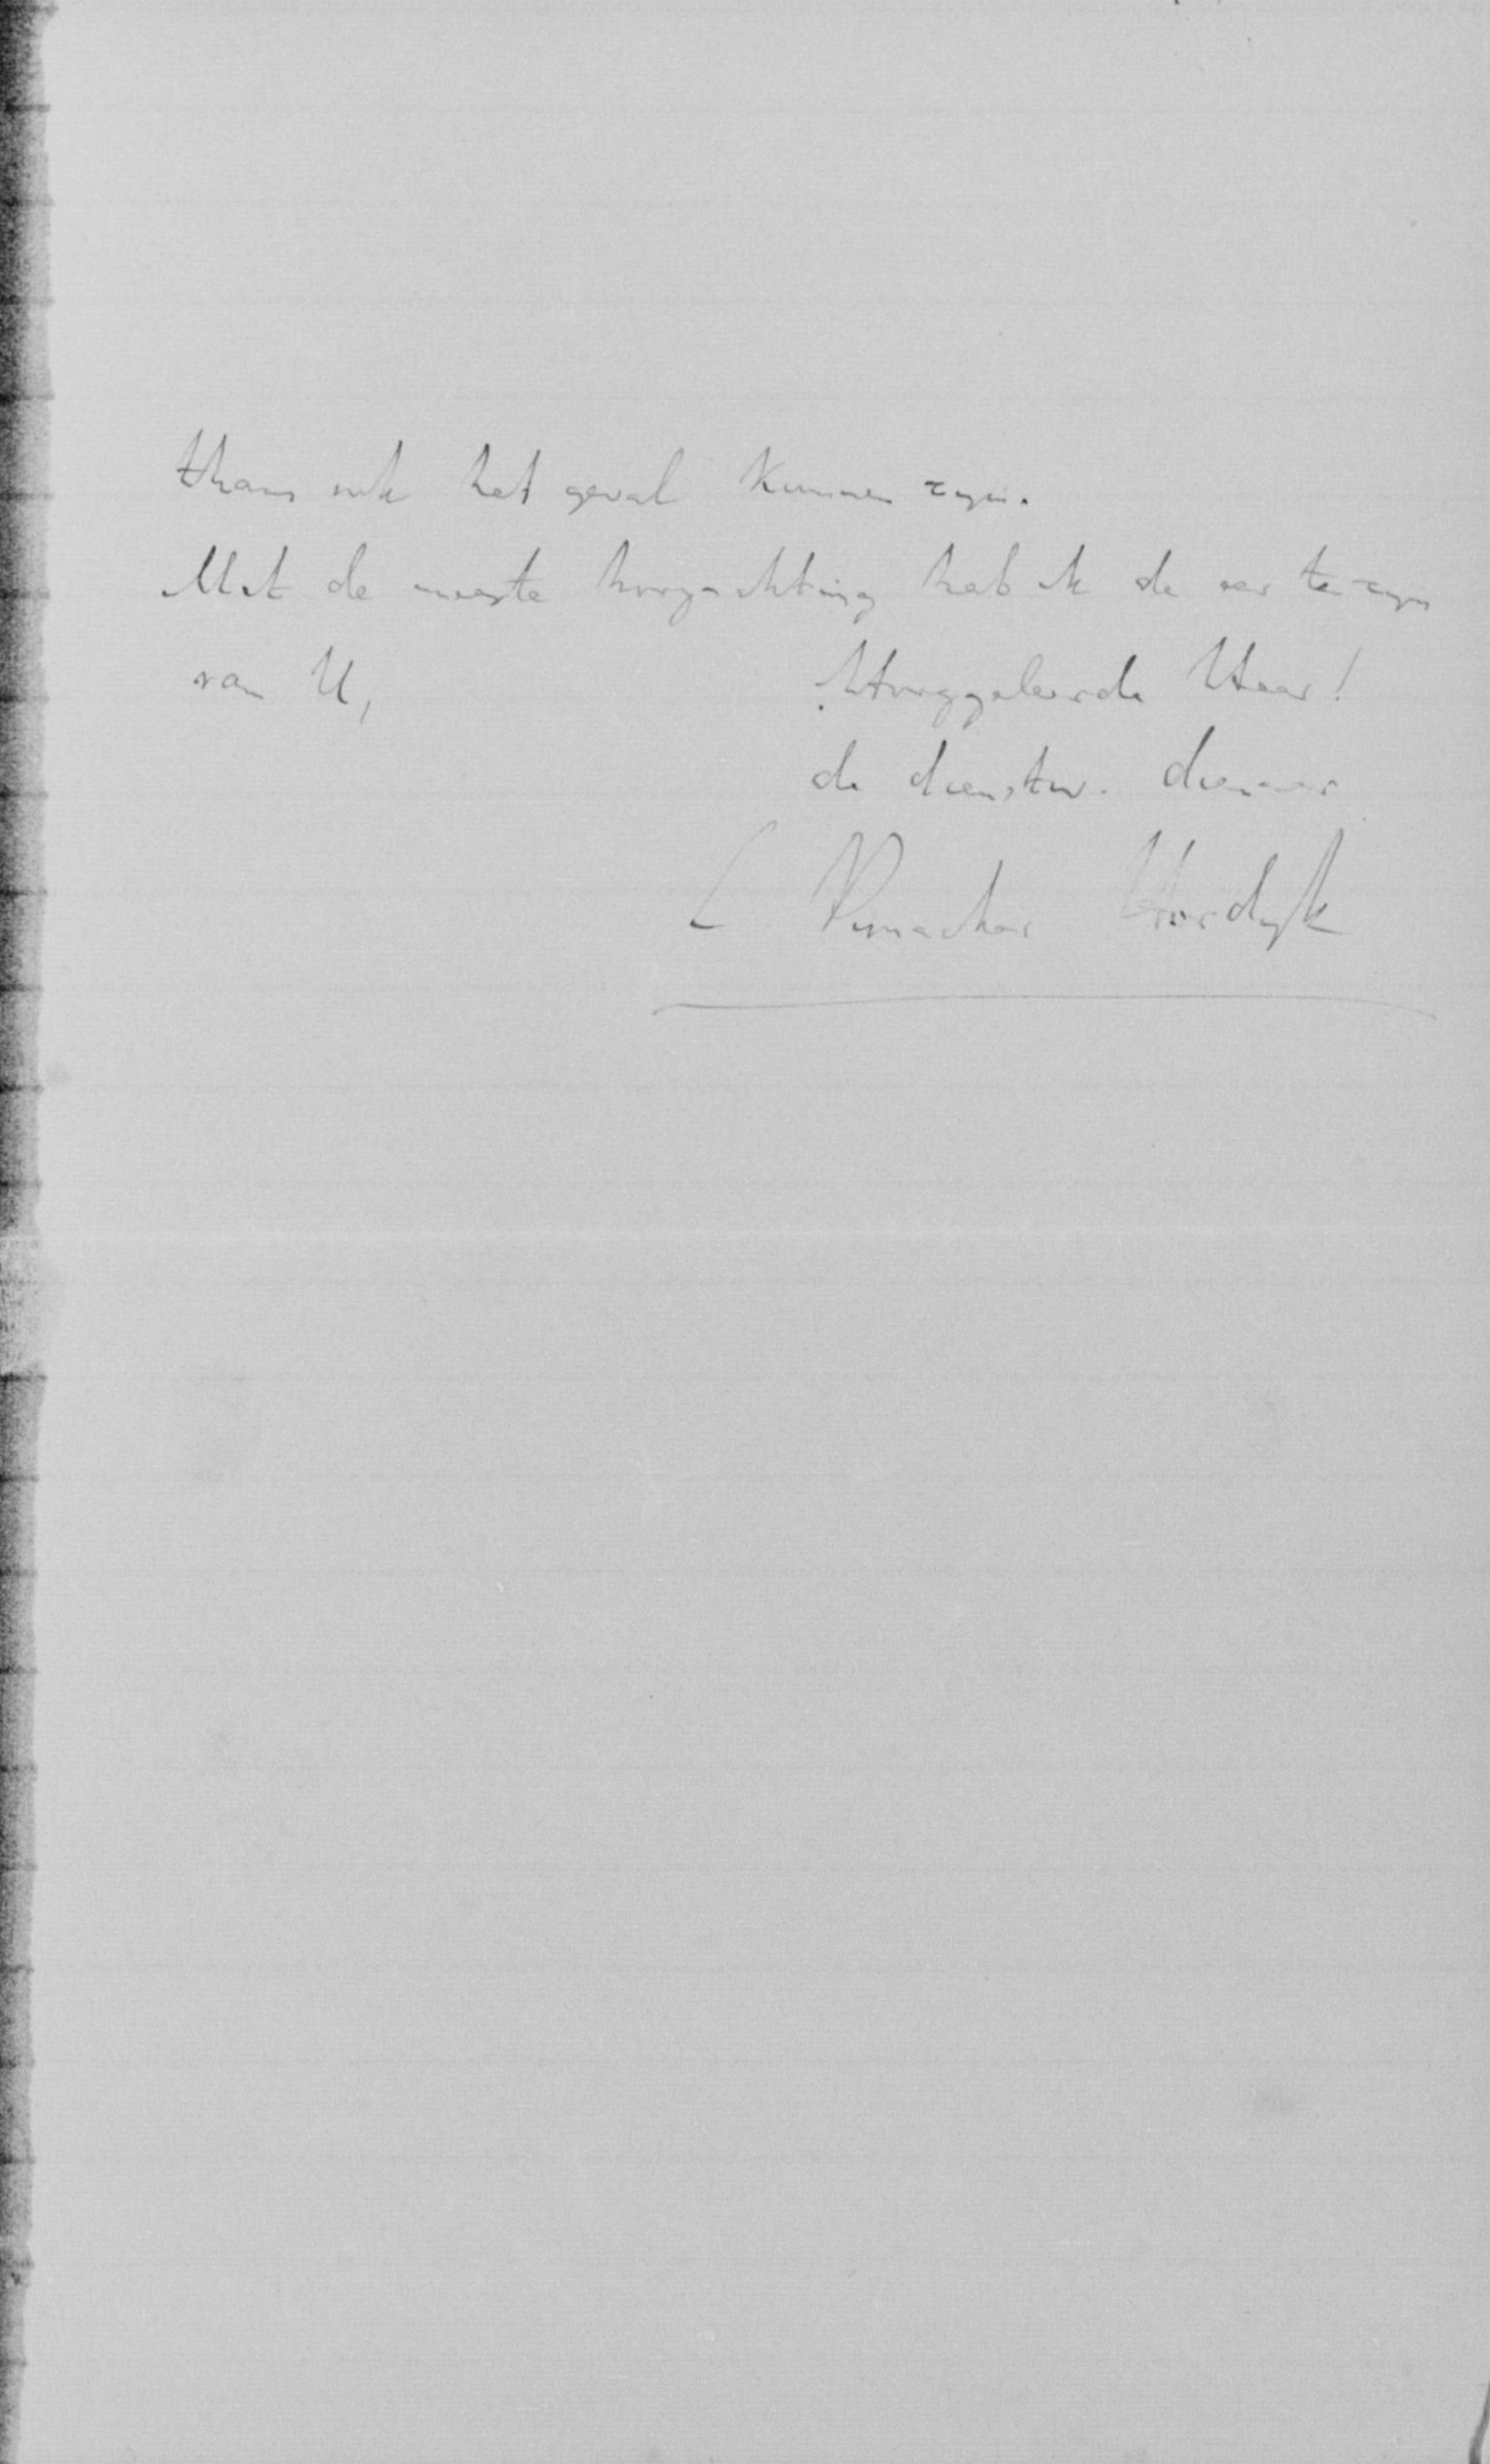 thans ook het geval kunnen zijn.
Met de meeste hoogachting heb ik de eer te zijn
van U, Hooggeleerde Heer!
de dienstw. dienaar
L Rumacher Hordijk